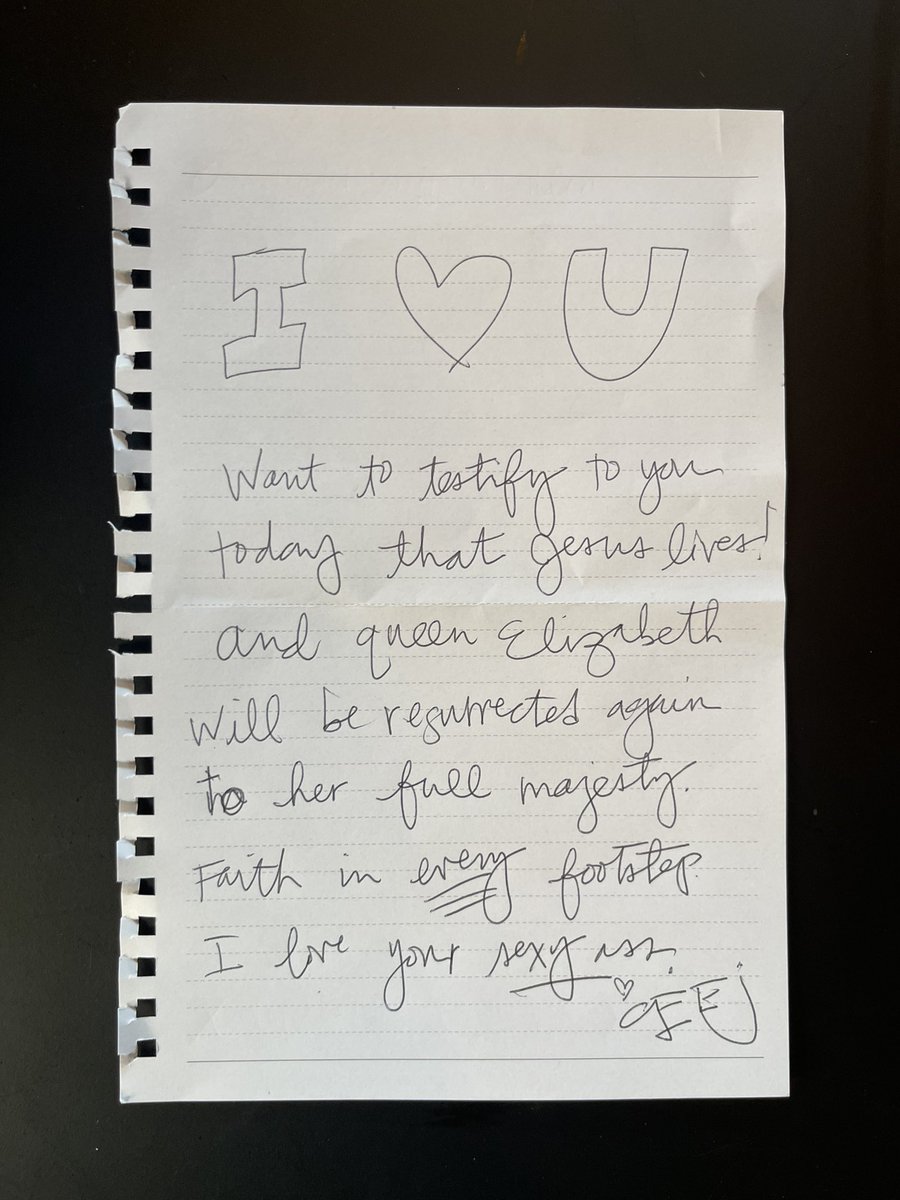 I ♡ U
Want to testify to you
today that Jesus lives!
and queen Elizabeth
will be resurrected again
to her full majesty.
Faith in every footstep.
I love your sexy ass.